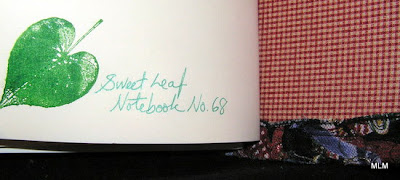 Sweet Leaf
Notebook No. 68
MLM